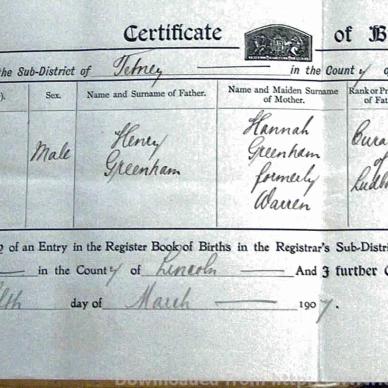 Certificate of B
the Sub-District of Tetney in the County
Sex. Name and Surname of Father. Name and Maiden Surname of Mother. Rank or Pr of Fat
Male
Henry
Greenham
Hannah
Greenham
formerly
Warren
Cura
of
Ludb
of an Entry in the Register Book of Births in the Registrar's Sub-Distri
in the County of Lincoln And I further
day of March 1907.
Downloaded from